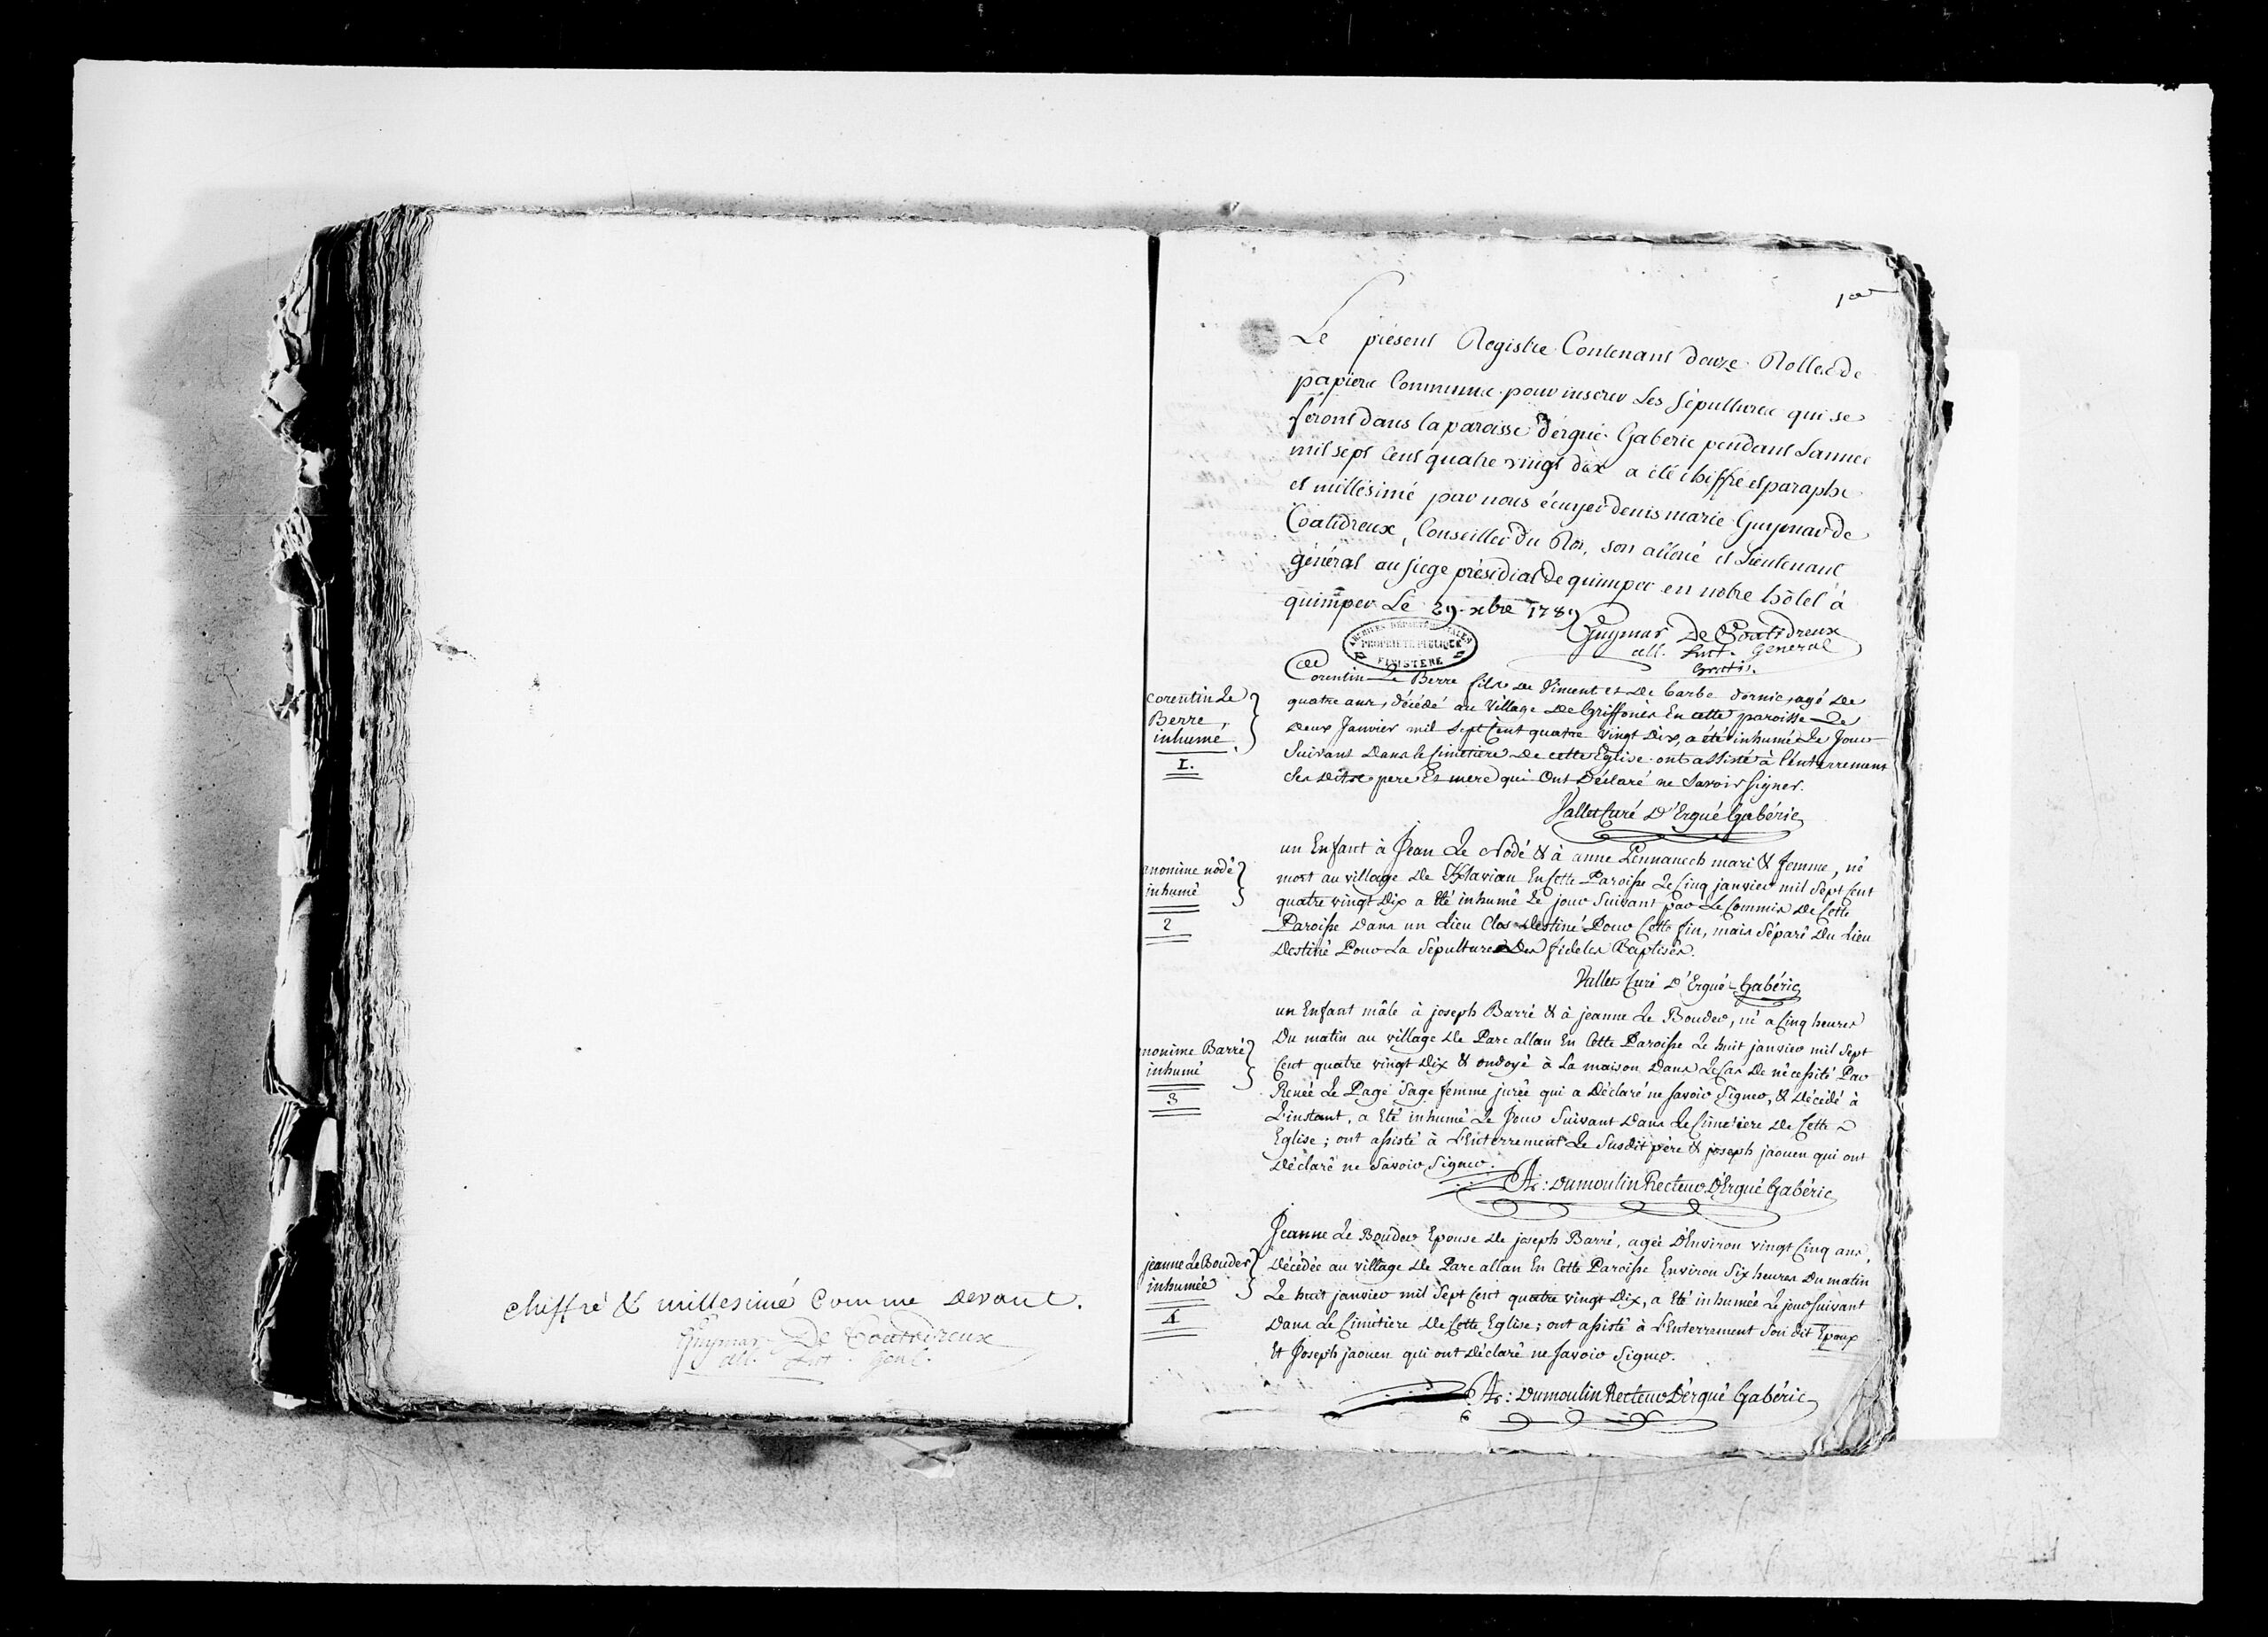 chiffré & millesimé comme devant.
Guymar De Coatidreux
all. Lut. Genl.
1er
Le présent Registre Contenant douze Rolles de
papiers Communs pour inserer Les sépultures qui se
feront dans la paroisse d'ergué Gaberic pendant L'année
mil sept cent quatre vingt dix a été chiffré et paraphé
et millésimé par nous écuyer denis marie Guymar de
Coatidreux, Conseiller du Roi, son alloué et Lieutenant
général au siege présidial de quimper en notre hôtel à
quimper Le 29 xbre 1789
Guymar De Coatidreux
all. Lut. General
Gratis.
ARCHIVES DÉPARTEMENTALES
PROPRIÉTÉ PUBLIQUE
FINISTÈRE
Corentin Le
Berre,
inhumé
1.
Corentin Le Berre fils de Vincent et de Barbe agé de
quatre ans, décédé au Village de Griffonès En cette paroisse Le
deux Janvier mil Sept Cent quatre vingt Dix, a été inhumé Le Jour
Suivant Dans le Cimetiere De cette Eglise ont assisté à l'enterrement
ses dits pere Et mere qui Ont Déclaré ne Savoir signer.
Vallet Curé D'Ergué Gabéric
anonime nodé
inhumé
2
un Enfant à Jean Le Nodé & à anne Pennanech mari & femme, né
mort au village De Klavian En Cette Paroisse Le Cinq janvier mil Sept Cent
quatre vingt Dix a Eté inhumé Le jour Suivant par Le Commis De Cette
Paroisse Dans un Lieu Clos Destiné Pour Cette fin, mais Séparé Du Lieu
Destiné Pour La Sépulture Des fideles Baptisés.
Vallet Curé D'Ergué-Gabéric
anonime Barré
inhumé
3
un Enfant mâle à joseph Barré & à jeanne Le Bouder, né a Cinq heures
Du matin au village De Parc allan En Cette Paroisse Le huit janvier mil Sept
Cent quatre vingt Dix & ondoyé à La maison Dans Le Cas De nécessité Par
Renée Le Page Sage femme jurée qui a Déclaré ne savoir Signer, & Décédé à
L'instant, a Eté inhumé Le Jour Suivant Dans Le Cimetiere De Cette
Eglise; ont assisté à L'Enterrement Le Susdit père & joseph jaouen qui ont
Déclaré ne Savoir Signer.
A: Dumoulin Recteur D'Ergué Gabéric
jeanne Le Bouder
inhumée
4
Jeanne Le Bouder Epouse De joseph Barré, agée D'Environ vingt Cinq ans,
Décédée au village De Parc allan En Cette Paroisse Environ Six heures Du matin
Le huit janvier mil Sept Cent quatre vingt Dix, a Eté inhumée Le jour Suivant
Dans Le Cimétiere De Cette Eglise; ont assisté à L'Enterrement Son dit Epoux
Et Joseph jaouen qui ont Déclaré ne Savoir Signer.
A: Dumoulin Recteur D'érgué Gabéric